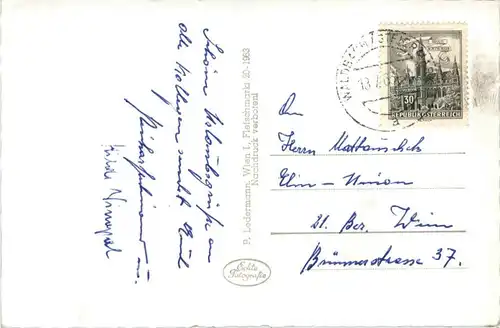 Schöne Urlaubsgrüße an
alle Kollegen sendet Euch
u.
P. Ledermann, Wien I., Fleischmarkt 20-1963
Nachdruck verboten!
Echte
Fotografie
WALD
30
REPUBLIK ÖSTERREICH
An
Herrn Mattausch
Elin-Union
21. Bez. Wien
Brünnerstrasse 37.